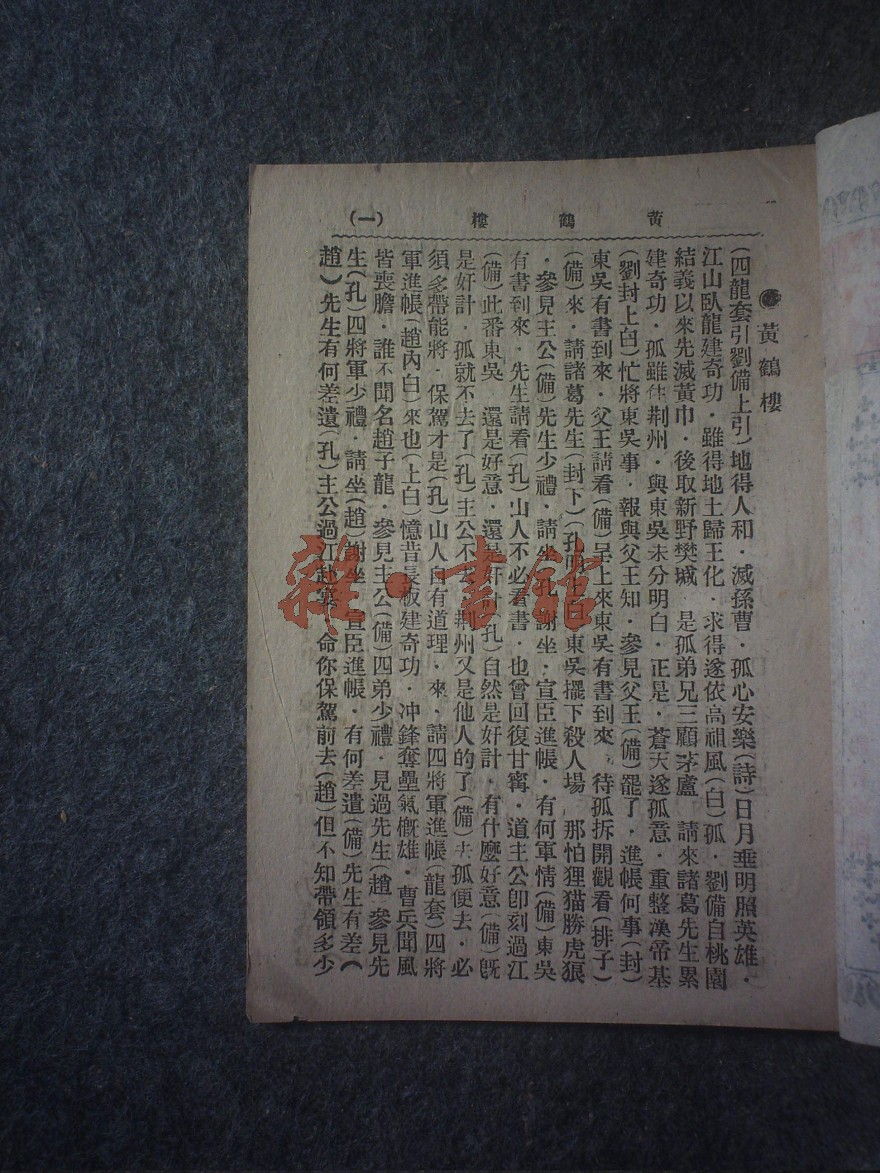 黃鶴樓 (一)
黃鶴樓
(四龍套引劉備上引)地得人和·滅孫曹·孤心安樂(詩)日月垂明照英雄·
江山臥龍建奇功·雖得地土歸王化·求得遂依高祖風(白)孤·劉備自桃園
結義以來先滅黃巾·後取新野樊城 是孤弟兄三顧茅廬 請來諸葛先生累
建奇功·孤雖 荊州·與東吳未分明白·正是·蒼天遂孤意·重整漢帝基
(劉封上白)忙將東吳事·報與父王知·參見父王(備)罷了·進帳何事(封)
東吳有書到來·父王請看(備)呈上來東吳有書到來 待孤拆開觀看(排子)
(備)來·請諸葛先生(封下)(孔 白)東吳擺下殺人場 那怕狸猫勝虎狼
·參見主公(備)先生少禮·請坐 謝坐·宣臣進帳·有何軍情(備)東吳
有書到來·先生請看(孔)山人不必看書·也曾回復甘寧·道主公卽刻過江
(備)此番東吳 還是好意·還是奸計(孔)自然是好計·有什麼好意(備)旣
是奸計·孤就不去了(孔)主公不去 荊州又是他人的了(備) 孤便去·必
須多帶能將·保駕才是(孔)山人自有道理·來·請四將軍進帳(龍套)四將
軍進帳(趙內白)來也(上白)憶昔長板建奇功·冲鋒奪壘氣概雄·曹兵聞風
皆喪膽·誰不聞名趙子龍·參見主公(備)四弟少禮·見過先生(趙 參見先
生(孔)四將軍少禮·請坐(趙)謝坐·宣臣進帳·有何差遣(備)先生有差(
趙)先生有何差遣(孔)主公過江赴宴 命你保駕前去(趙)但不知帶領多少
雜·書館